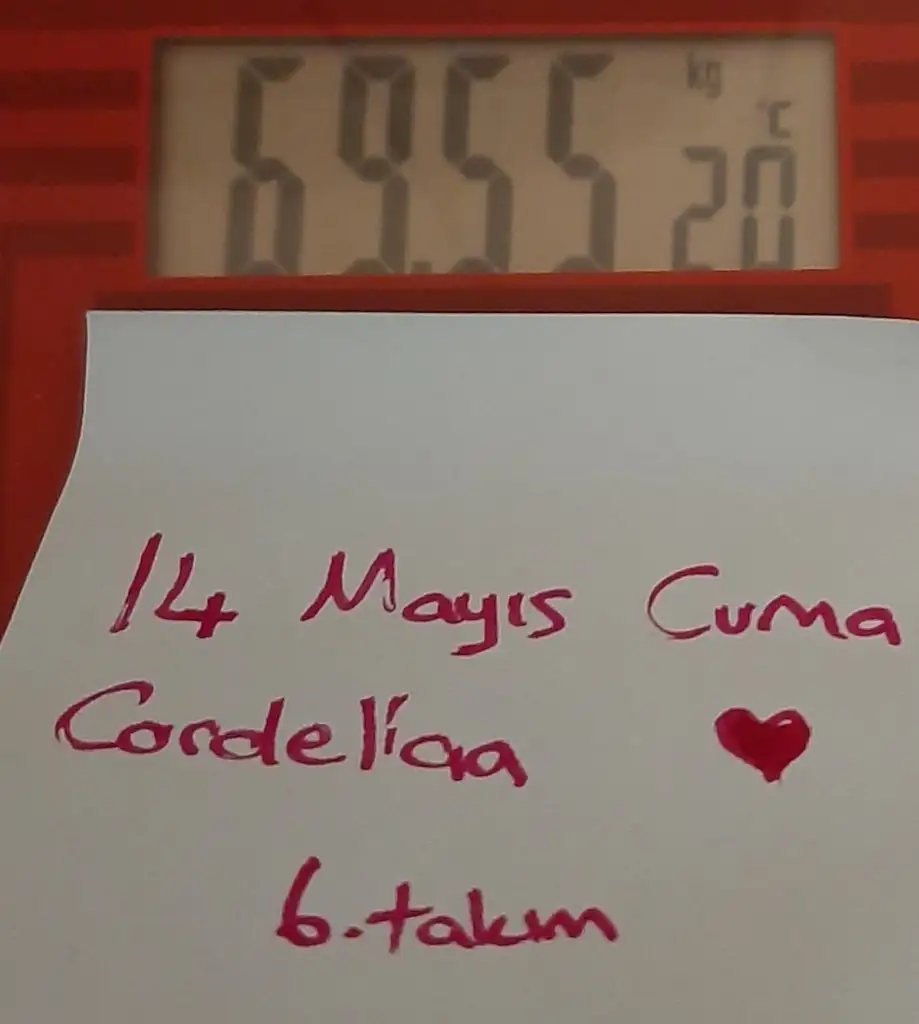 69.55 kg
20 °C
14 Mayıs Cuma
Cordeliaa ♥
6.takım